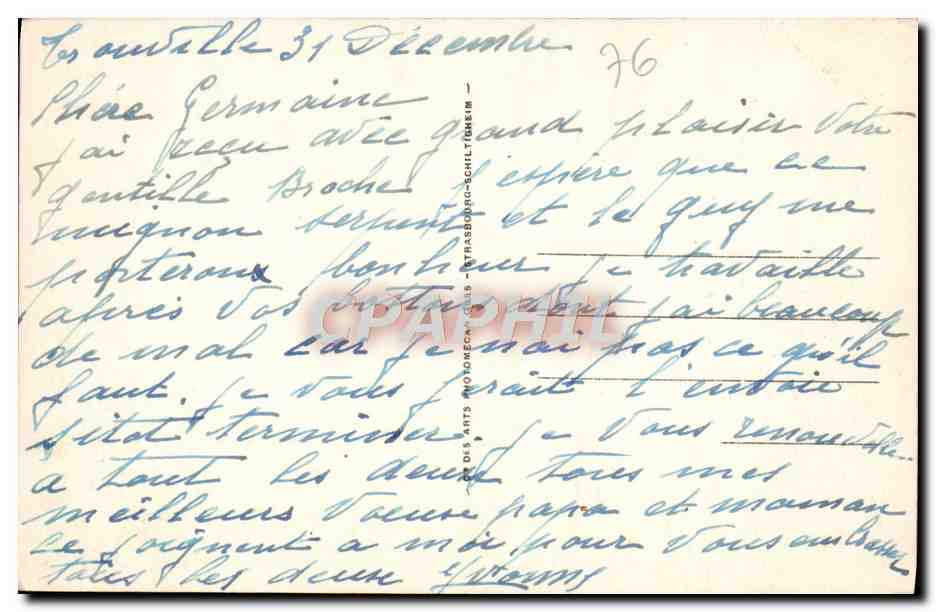 Trouville 31 Décembre
76
Chère Germaine
j'ai reçu avec grand plaisir votre
gentille Broche j'espère que ce
mignon serpent et le guy me
porteront bonheur je travaille
après vos dont j'ai beaucoup
de mal car je n'ai pas ce qu'il
faut. je vous ferait l'envoie
sitot terminer, je vous renouvelle
a tout les deux tous mes
meilleurs Voeuse papa et maman
se joignent a moi pour vous embrasser
tous les deux Yvonne
CIE DES ARTS PHOTOMECANIQUES - STRASBOURG-SCHILTIGHEIM
CPAPHIL